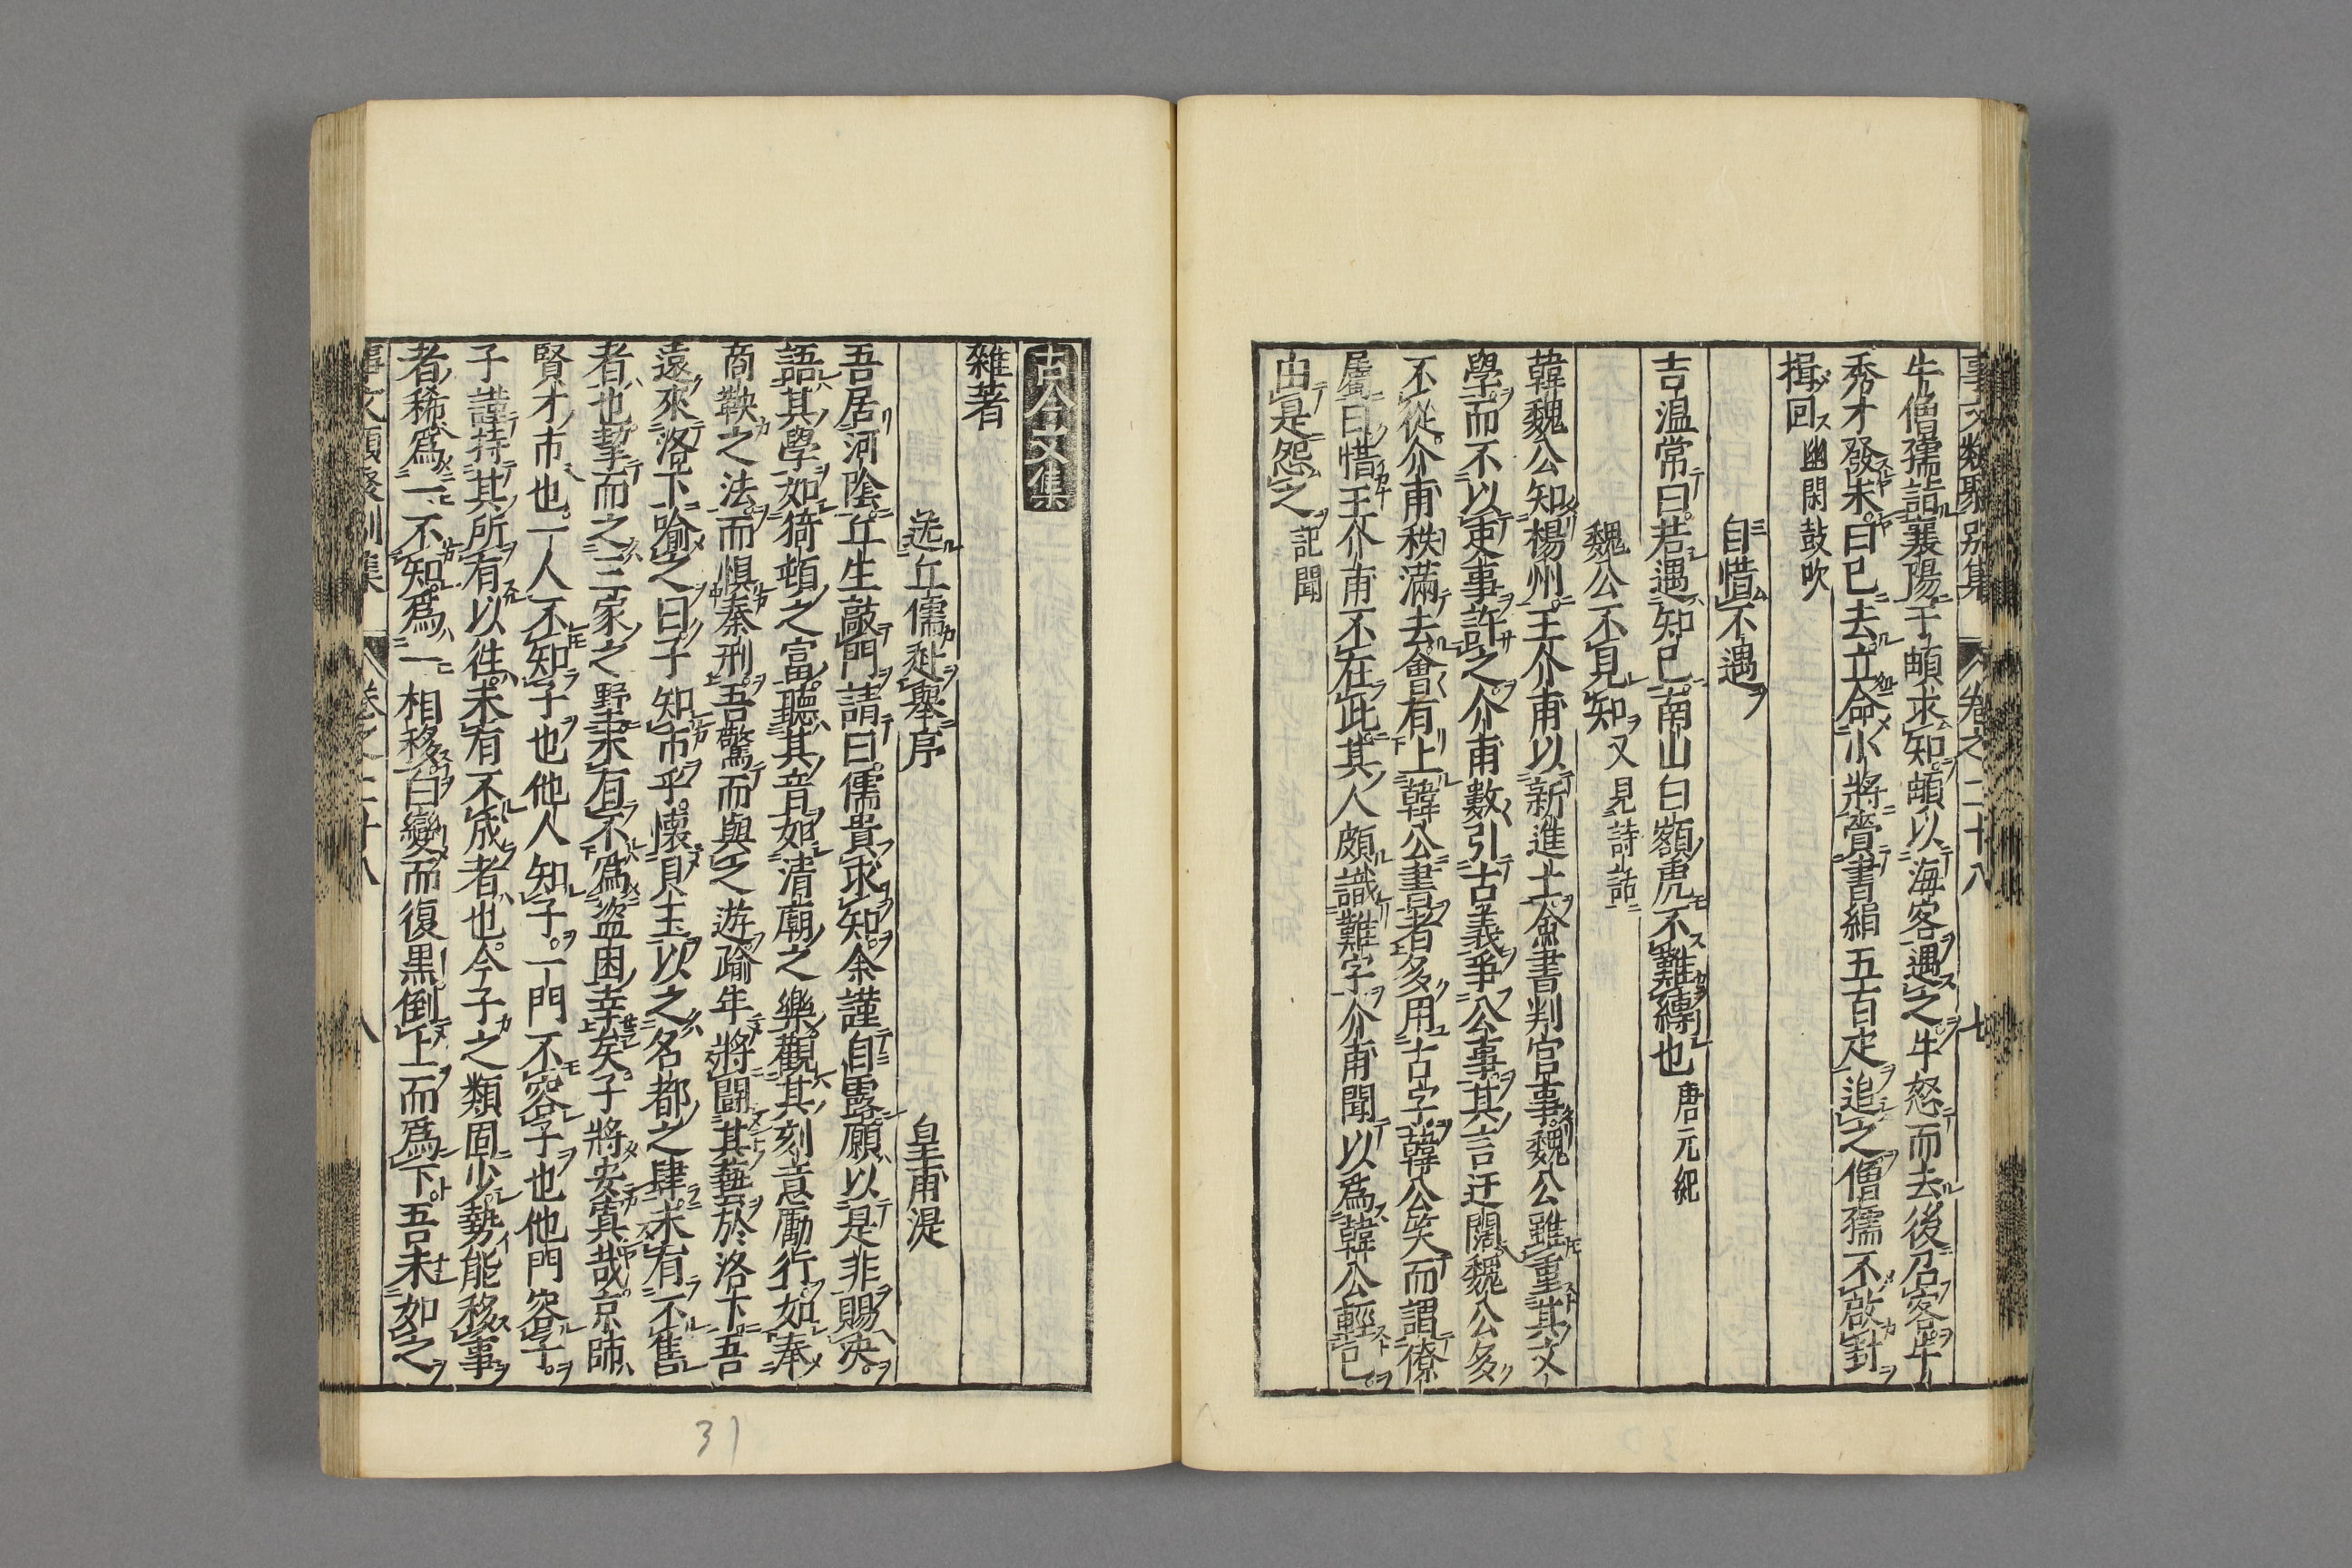 事文類聚別集 卷之二十八 七
牛僧孺詣襄陽于頔求知頔以海客遇之牛怒而去後召客牛
秀才發未曰已去立命小將賫書絹五百疋追之僧孺不啟封
揖回 幽閑鼓吹
自惜不遇
吉温常曰若遇知已南山白額虎不難縛也 唐元紀
魏公不見知 又見詩話
韓魏公知楊州王介甫以新進士僉書判官事魏公雖重其文
學而不以吏事許之介甫數引古義爭公事其言迂闊魏公多
不從介甫秩滿去會有上韓公書者多用古字韓公笑而謂僚
屬曰惜王介甫不在此其人頗識難字介甫聞以爲韓公輕已
由是怨之 記聞
古今文集
雜著
送丘儒赴舉序 皇甫湜
吾居河陰丘生敲門請曰儒貴求知余謹自露願以是非賜決
語其學如猗頓之富聽其音如清廟之樂觀其刻意勵行如奉
商鞅之法而懼秦刑吾驚而與之遊踰年將鬪其藝於洛下吾
遠來洛下喻之曰子知市乎懷貝玉以之名都之肆未有不售
者也挈而之三家之野未有不爲盜困幸矣子將安寘哉京師
賢才市也一人不知子也他人知子一門不容子也他門容子
子謹持其所有以往未有不成者也今子之類固少勢能移事
者稀爲一不知爲一相移白變而復黒倒上而爲下吾未如之
事文類聚別集 卷之二十八 八
31